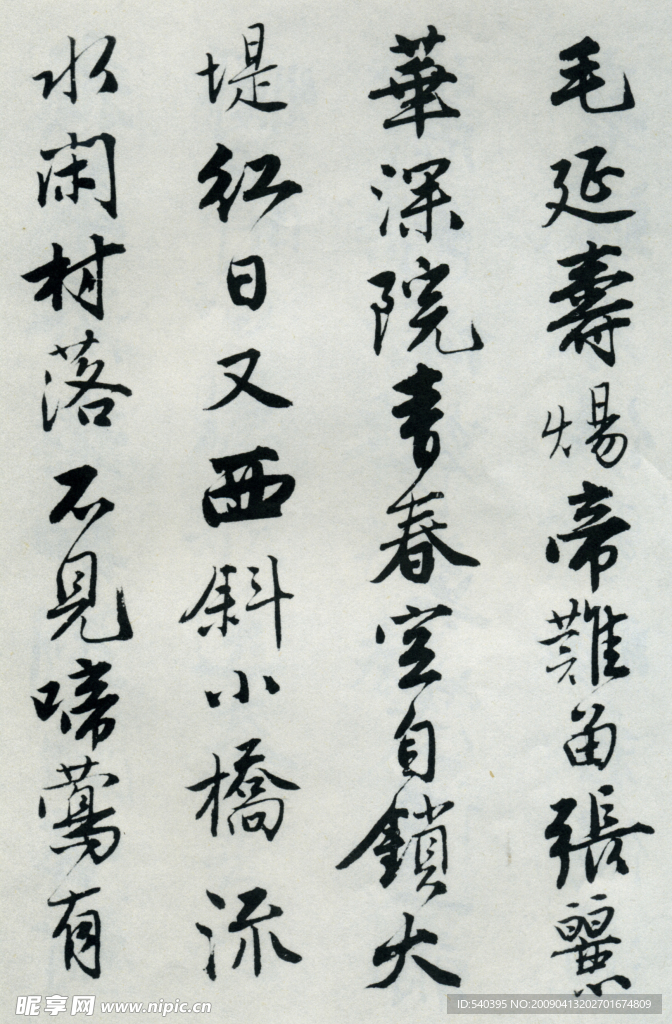 毛延壽煬帝難留張麗
華深院青春空自鎖大
堤紅日又西斜小橋流
水閑村落不見啼鶯有
昵享网 www.nipic.cn
ID:540395 NO:20090413202701674809